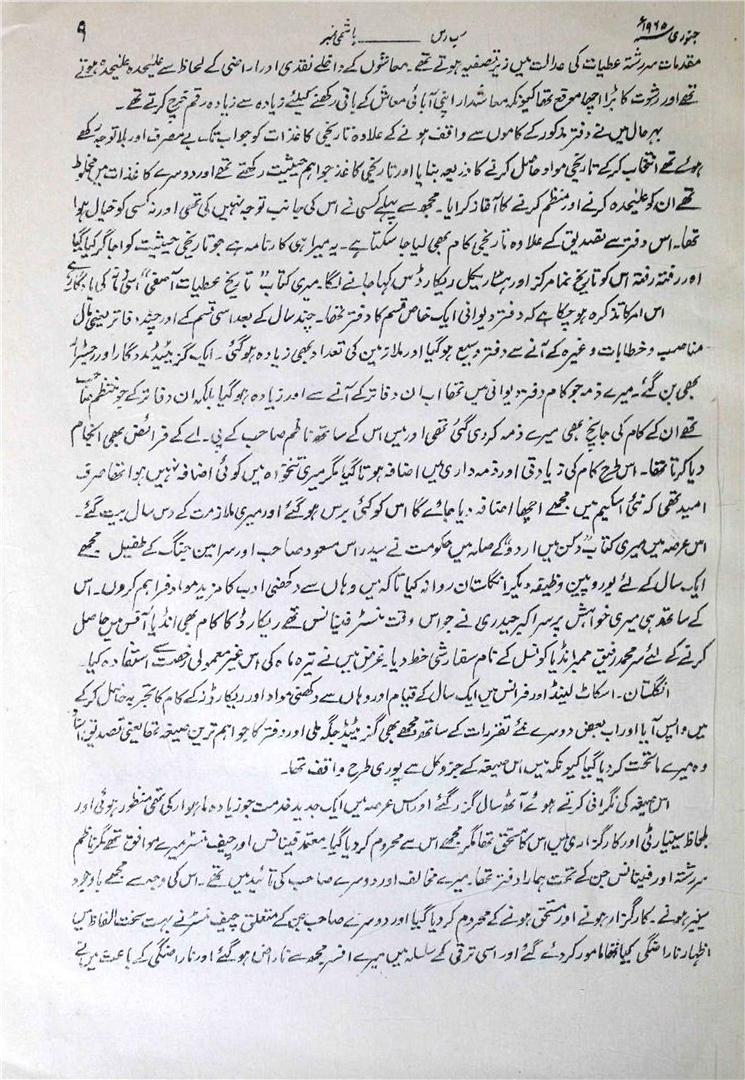 جنوری ۱۹۶۵ء سب رس ہاشمی نمبر ۹
مقدمات سررشتہ عطیات کی عدالت میں زیر تصفیہ ہوتے تھے۔ معاشوں کے داخلے نقدی اور اراضی کے لحاظ سے علیحدہ علیحدہ ہوتے
تھے اور رشوت کا بڑا اچھا موقع تھا کیونکہ معاشدار اپنی آبائی معاش کے باقی رکھنے کیلئے زیادہ سے زیادہ رقم خرچ کرتے تھے۔
بہرحال میں نے دفتر مذکور کے کاموں سے واقف ہونے کے علاوہ تاریخی کاغذات کو جو اب تک بے مصرف اور بلا توجہ رکھے
ہوئے تھے انتخاب کرکے تاریخی مواد حاصل کرنے کا ذریعہ بنایا اور تاریخی کاغذ جو اہم حیثیت رکھتے تھے اور دوسرے کاغذات میں مخلوط
تھے ان کو علیحدہ کرنے اور منظم کرنے کا آغاز کرایا۔ مجھ سے پہلے کسی نے اس کی جانب توجہ نہیں کی تھی اور نہ کسی کو خیال ہوا
تھا۔ اس دفتر سے تصدیق کے علاوہ تاریخی کام بھی لیا جا سکتا ہے۔ یہ میرا ہی کارنامہ ہے جو تاریخی حیثیت کو اجاگر کیا گیا
اور رفتہ رفتہ اس کو تاریخ کا مرکز اور ہسٹاریکل ریکارڈس کہا جانے لگا۔ میری کتاب "تاریخ عطیات آصفی" اسی کی یادگار ہے
اس امر کا تذکرہ ہو چکا ہے کہ دفتر دیوانی ایک خاص قسم کا دفتر تھا۔ چند سال کے بعد اسی قسم کے اور چند دفاتر یعنی مال
مناصب و خطابات وغیرہ کے آنے سے دفتر وسیع ہو گیا اور ملازمین کی تعداد بھی زیادہ ہو گئی۔ ایک گزیٹیڈ مددگار اور رجسٹرار
بھی بن گئے۔ میرے ذمہ جو کام دفتر دیوانی میں تھا اب ان دفاتر کے آنے سے اور زیادہ ہو گیا بلکہ ان دفاتر کے جو منتظم صاحب
تھے ان کے کام کی جانچ بھی میرے ذمہ کردی گئی تھی اور میں اس کے ساتھ ناظم صاحب کے پی۔ اے کے فرائض بھی انجام
دیا کرتا تھا۔ اس طرح کام کی زیادتی اور ذمہ داری میں اضافہ ہوتا گیا مگر میری تنخواہ میں کوئی اضافہ نہیں ہوا تھا صرف
امید تھی کہ نئی اسکیم میں مجھے اچھا اضافہ دیا جائے گا اس کو کئی برس ہو گئے اور میری ملازمت کے دس سال بیت گئے۔
اس عرصہ میں میری کتاب "دکن میں اردو" کے صلہ میں حکومت نے سید راس مسعود صاحب اور سر امین جنگ کے طفیل مجھے
ایک سال کے لئے یوروپین وظیفہ دیکر انگلستان روانہ کیا تاکہ میں وہاں سے دکھنی ادب کا مزید مواد فراہم کروں۔ اس
کے ساتھ ہی میری خواہش پر سر اکبر حیدری نے جو اس وقت منسٹر فینانس تھے ریکارڈ کا کام بھی انڈیا آفس میں حاصل
کرنے کے لئے سر محمد رفیق ممبر انڈیا کونسل کے نام سفارشی خط دیا۔ غرض میں نے تیرہ ماہ کی اس غیر معمولی رخصت سے استفادہ کیا۔
انگلستان۔ اسکاٹ لینڈ اور فرانس میں ایک سال کے قیام اور وہاں سے دکھنی مواد اور ریکارڈز کے کام کا تجربہ حاصل کرکے
میں واپس آیا اور اب بعض دوسرے نئے تقررات کے ساتھ مجھے بھی گزیٹیڈ جگہ ملی اور دفتر کا جو اہم ترین صیغہ تھا یعنی تصدیق
وہ میرے ماتحت کردیا گیا کیونکہ میں اس صیغہ کے جزو کل سے پوری طرح واقف تھا۔
اس صیغہ کی نگرانی کرتے ہوئے آٹھ سال گزر گئے اور اس عرصہ میں ایک جدید خدمت جو زیادہ ماہوار کی تھی منظور ہوئی اور
بلحاظ سینیارٹی اور کارگزاری میں اس کا مستحق تھا مگر مجھے اس سے محروم کردیا گیا۔ معتمد فینانس اور چیف منسٹر میرے موافق تھے مگر ناظم
سررشتہ اور فینانس جن کے تحت ہمارا دفتر تھا۔ میرے مخالف اور دوسرے صاحب کی تائید میں تھے۔ اس کی وجہ سے مجھے باوجود
سینیر ہونے۔ کارگزار ہونے اور مستحق ہونے کے محروم کردیا گیا اور دوسرے صاحب جن کے متعلق چیف منسٹر نے بہت سخت الفاظ میں
اظہار ناراضگی کیا تھا مامور کردئے گئے اور اسی ترقی کے سلسلہ میں میرے افسر مجھ سے ناراض ہو گئے اور ناراضگی کے باعث میں نے